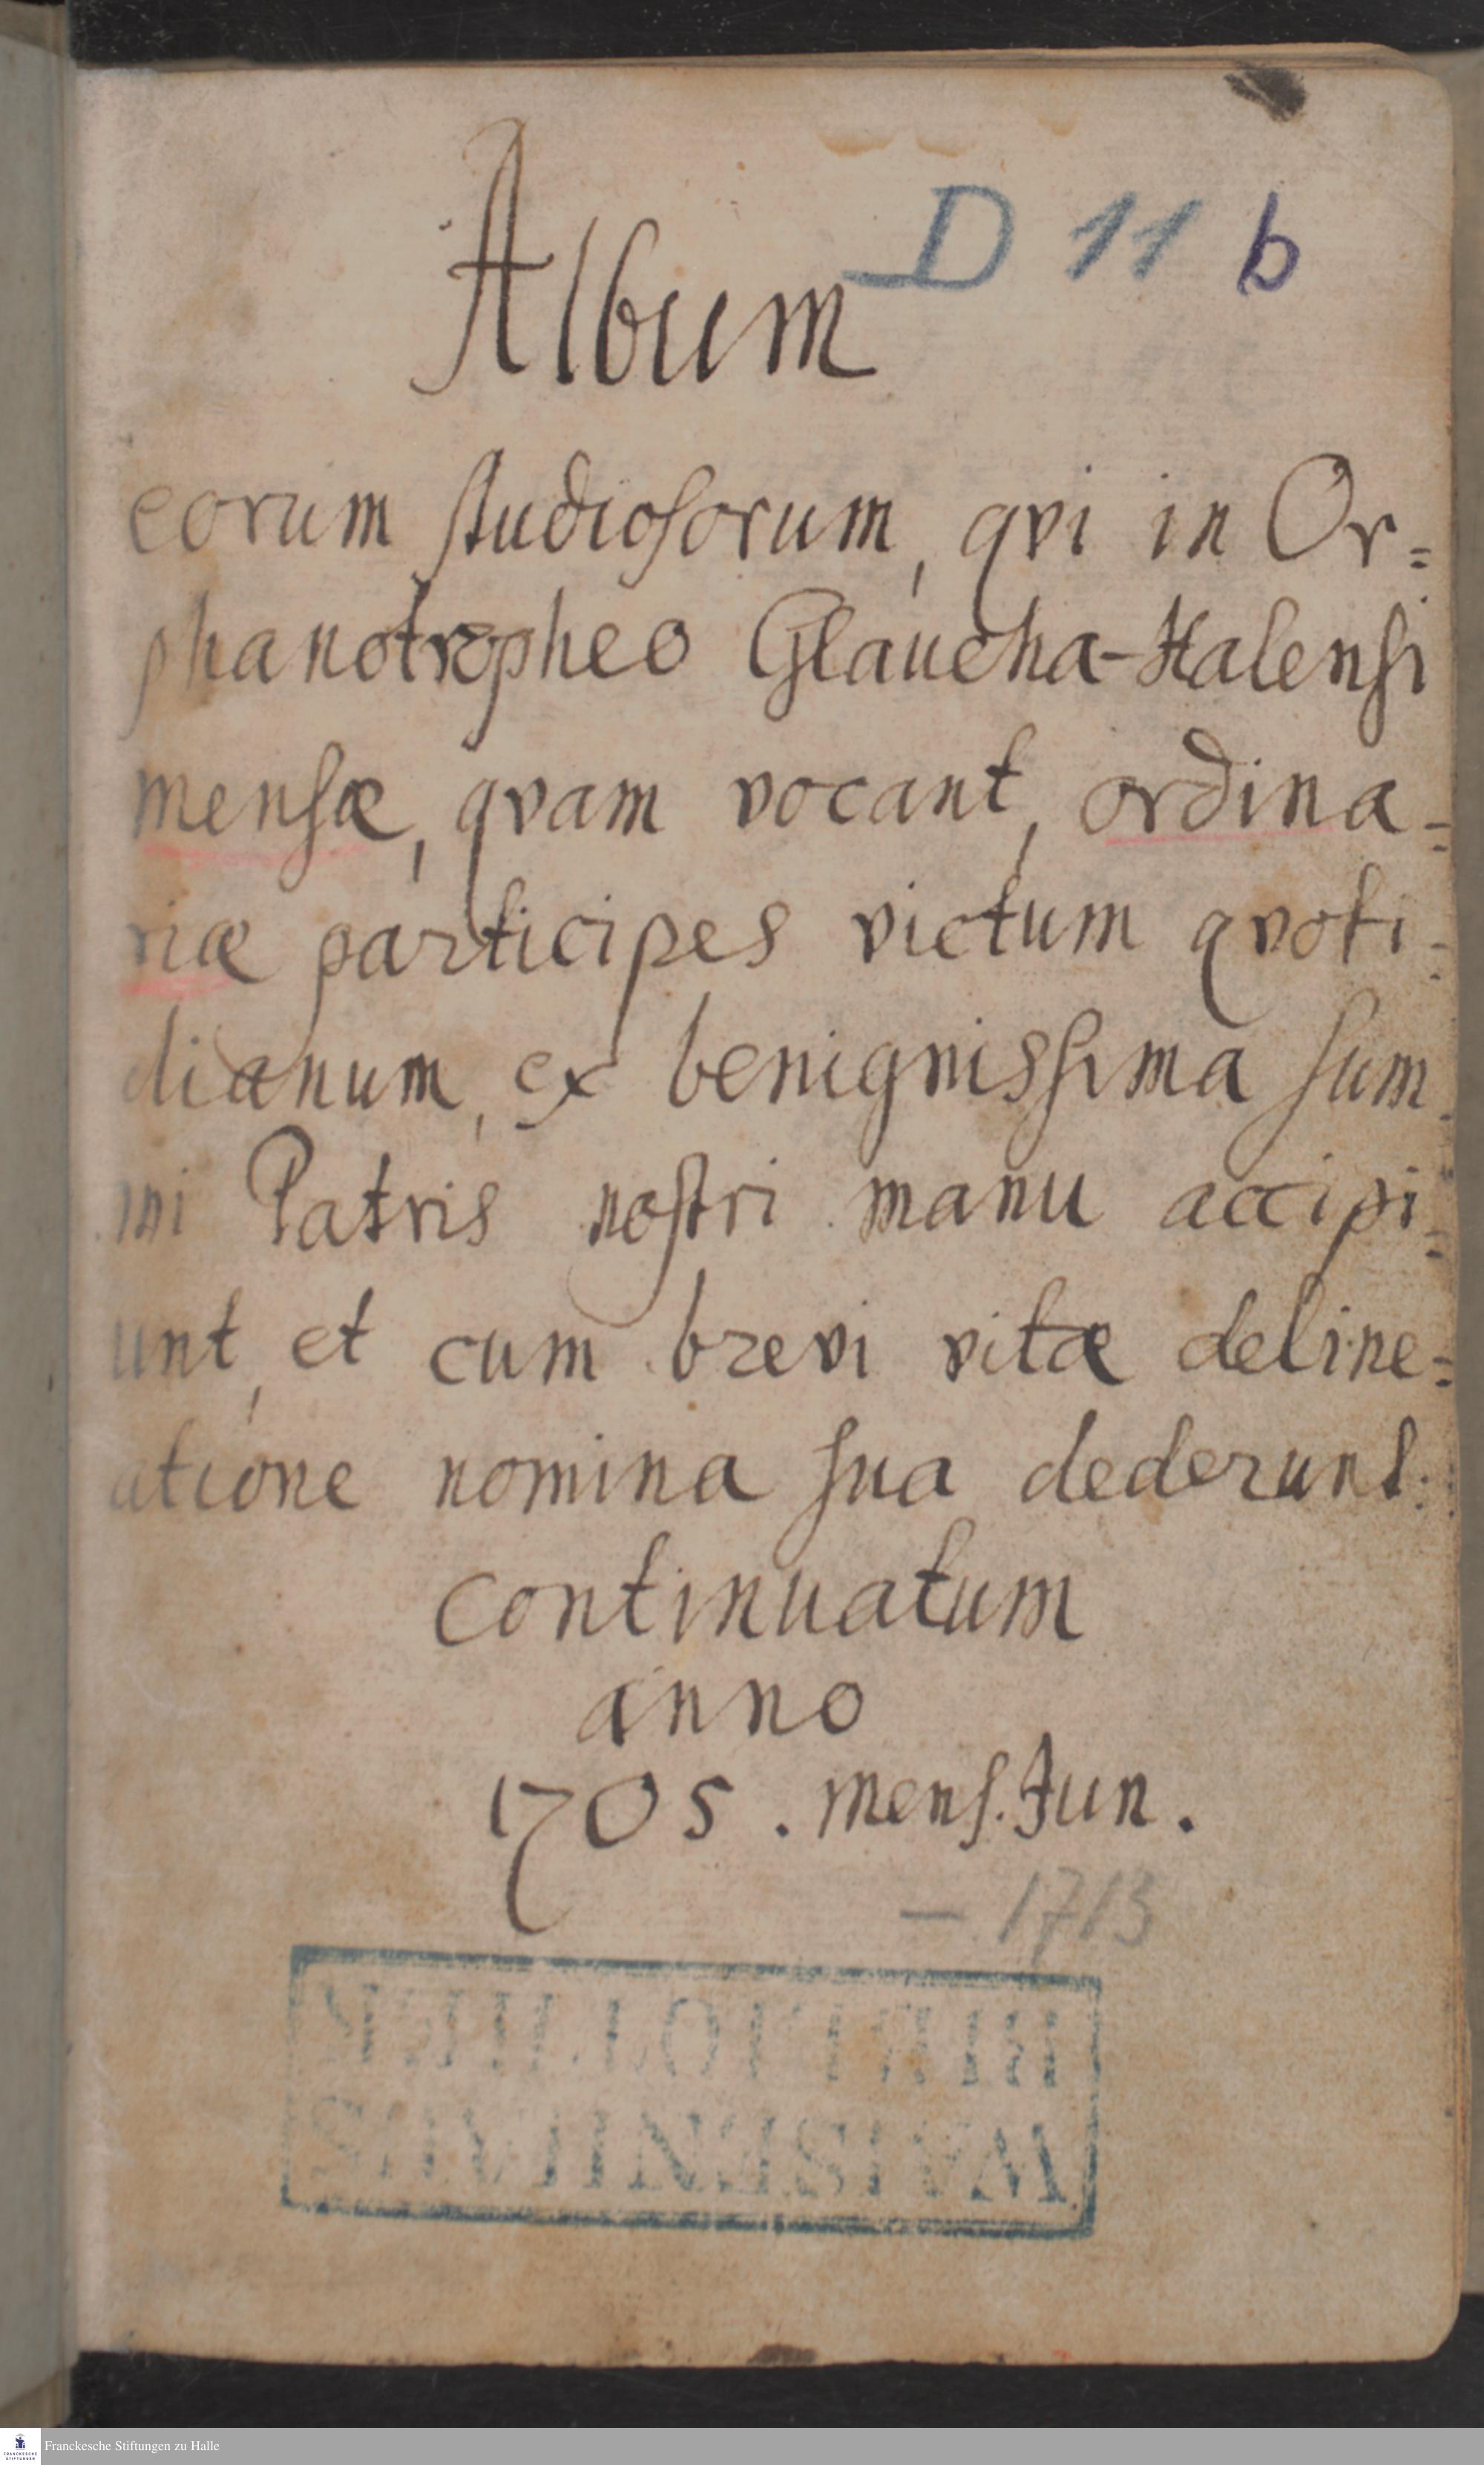 D 11 b
Album
eorum studiosorum, qvi in Or=
phanotropheo Glaucha-Halensi
mensæ, qvam vocant, ordina=
riæ participes victum qvoti=
dianum, ex benignissima sum=
mi Patris nostri manu accipi=
unt, et cum brevi vitæ deline=
atione nomina sua dederunt.
continuatum
anno
1705. Mens. Jun.
– 1713
Franckesche Stiftungen zu Halle
FRANCKESCHE
STIFTUNGEN